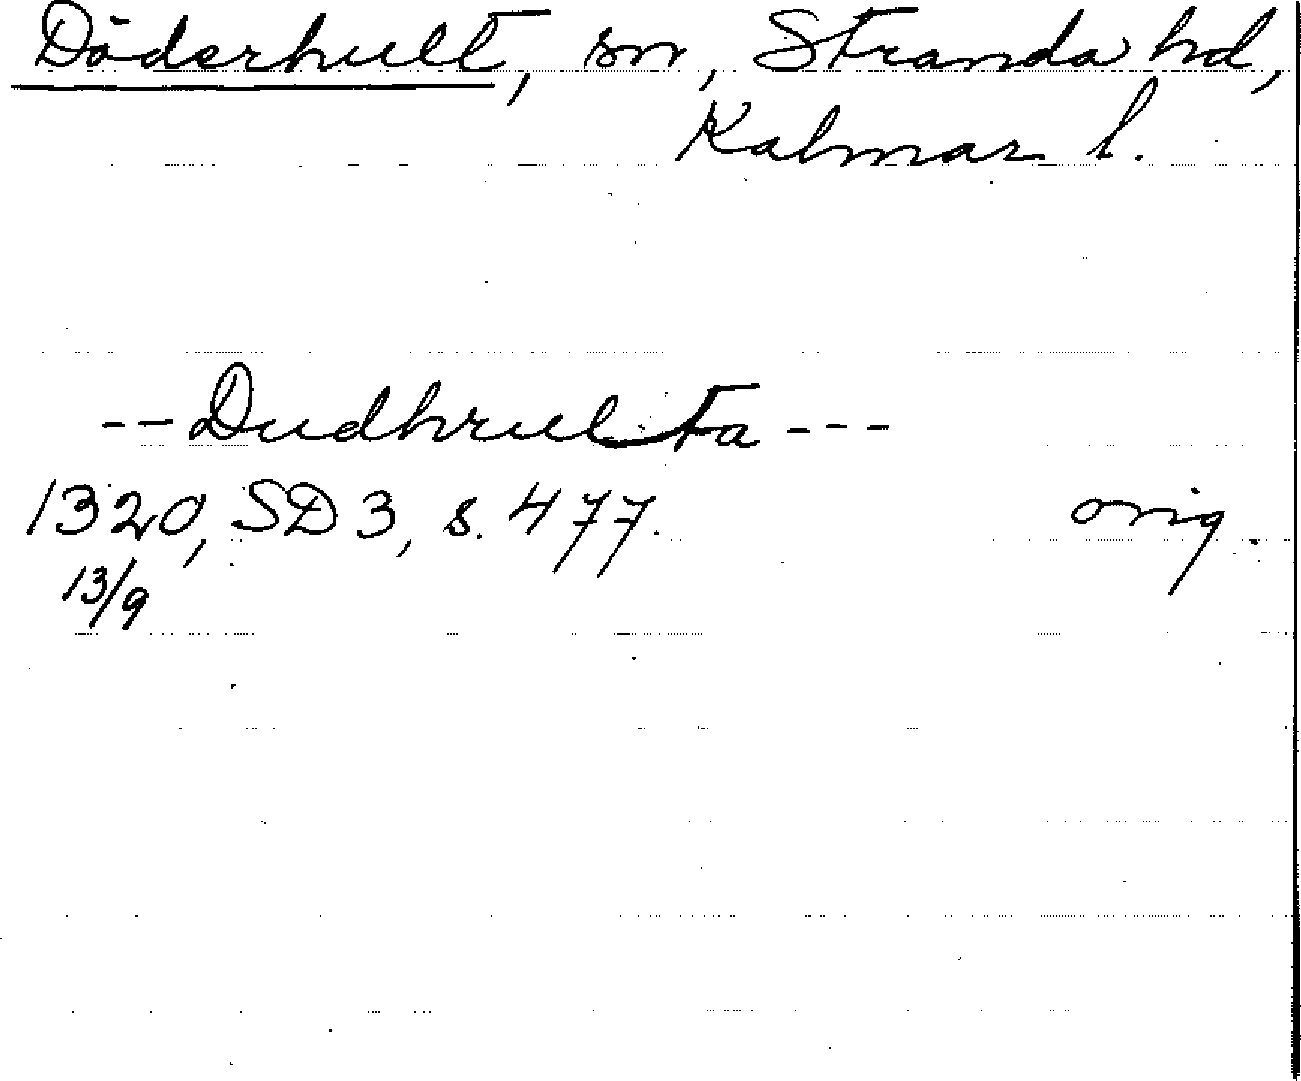 Döderhult, sn, Stranda hd,
Kalmar l.
-- Dudhrulta ---
1320, SD 3, s. 477. orig.
13/9